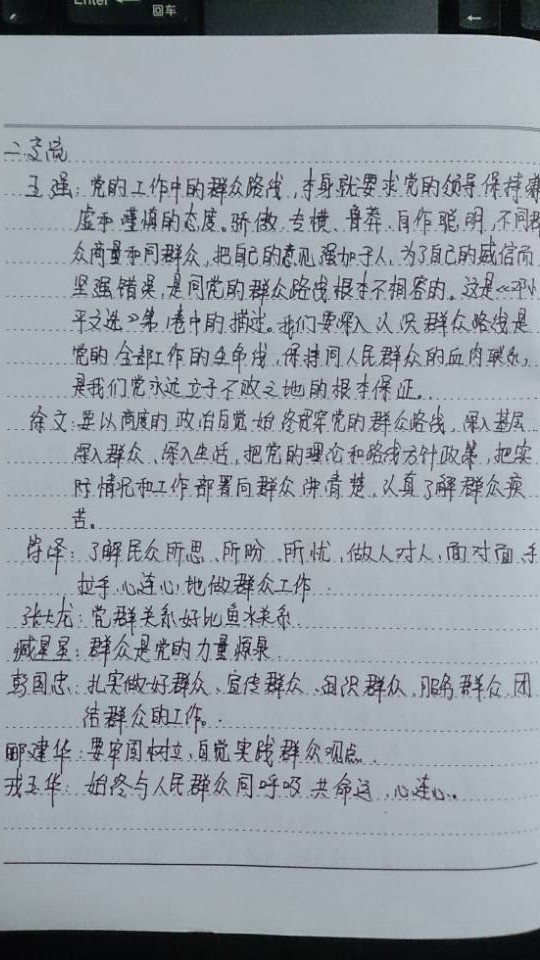 Enter
回车
二.交流
王强: 党的工作中的群众路线, 本身就要求党的领导保持谦
虚和谨慎的态度。骄傲、专横、鲁莽、自作聪明, 不同群
众商量和同群众, 把自己的意见强加于人, 为了自己的威信而
坚强错误, 是同党的群众路线根本不相容的。这是《邓小
平文选》第1卷中的描述。我们要深入认识群众路线是
党的全部工作的生命线, 保持同人民群众的血肉联系,
是我们党永远立于不败之地的根本保证。
徐文: 要以高度的政治自觉始终贯穿党的群众路线, 深入基层、
深入群众、深入生活, 把党的理论和路线方针政策, 把实
际情况和工作部署向群众讲清楚, 认真了解群众疾
苦。
泽: 了解民众所思、所盼、所忧, 做人对人, 面对面, 手
拉手, 心连心, 地做群众工作
张大龙: 党群关系好比鱼水关系.
臧星星: 群众是党的力量源泉
彭国忠: 扎实做好群众、宣传群众、组织群众, 服务群众, 团
结群众的工作。
郦建华: 要牢固树立, 自觉实践群众观点.
戎玉华: 始终与人民群众同呼吸 共命运, 心连心.